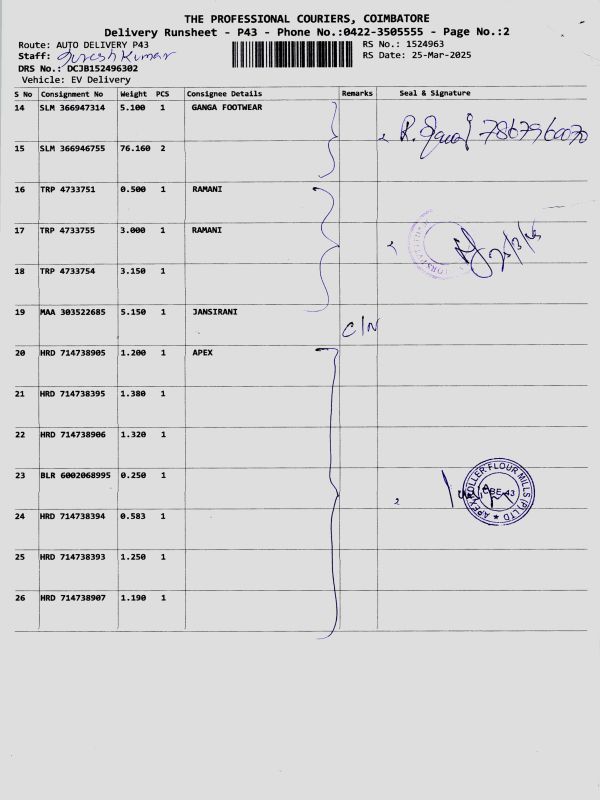 THE PROFESSIONAL COURIERS, COIMBATORE
Delivery Runsheet - P43 - Phone No.:0422-3505555 - Page No.:2
Route: AUTO DELIVERY P43 RS No.: 1524963
Staff: Sureshkumar RS Date: 25-Mar-2025
DRS No.: DCJB152496302
Vehicle: EV Delivery
S No Consignment No Weight PCS Consignee Details Remarks Seal & Signature
14 SLM 366947314 5.100 1 GANGA FOOTWEAR
15 SLM 366946755 76.160 2
16 TRP 4733751 0.500 1 RAMANI
17 TRP 4733755 3.000 1 RAMANI
18 TRP 4733754 3.150 1
19 MAA 303522685 5.150 1 JANSIRANI C/N
20 HRD 714738905 1.200 1 APEX
21 HRD 714738395 1.380 1
22 HRD 714738906 1.320 1
23 BLR 6002068995 0.250 1
APEX ROLLER FLOUR MILLS (P) LTD
CBE-43
24 HRD 714738394 0.583 1
25 HRD 714738393 1.250 1
26 HRD 714738907 1.190 1